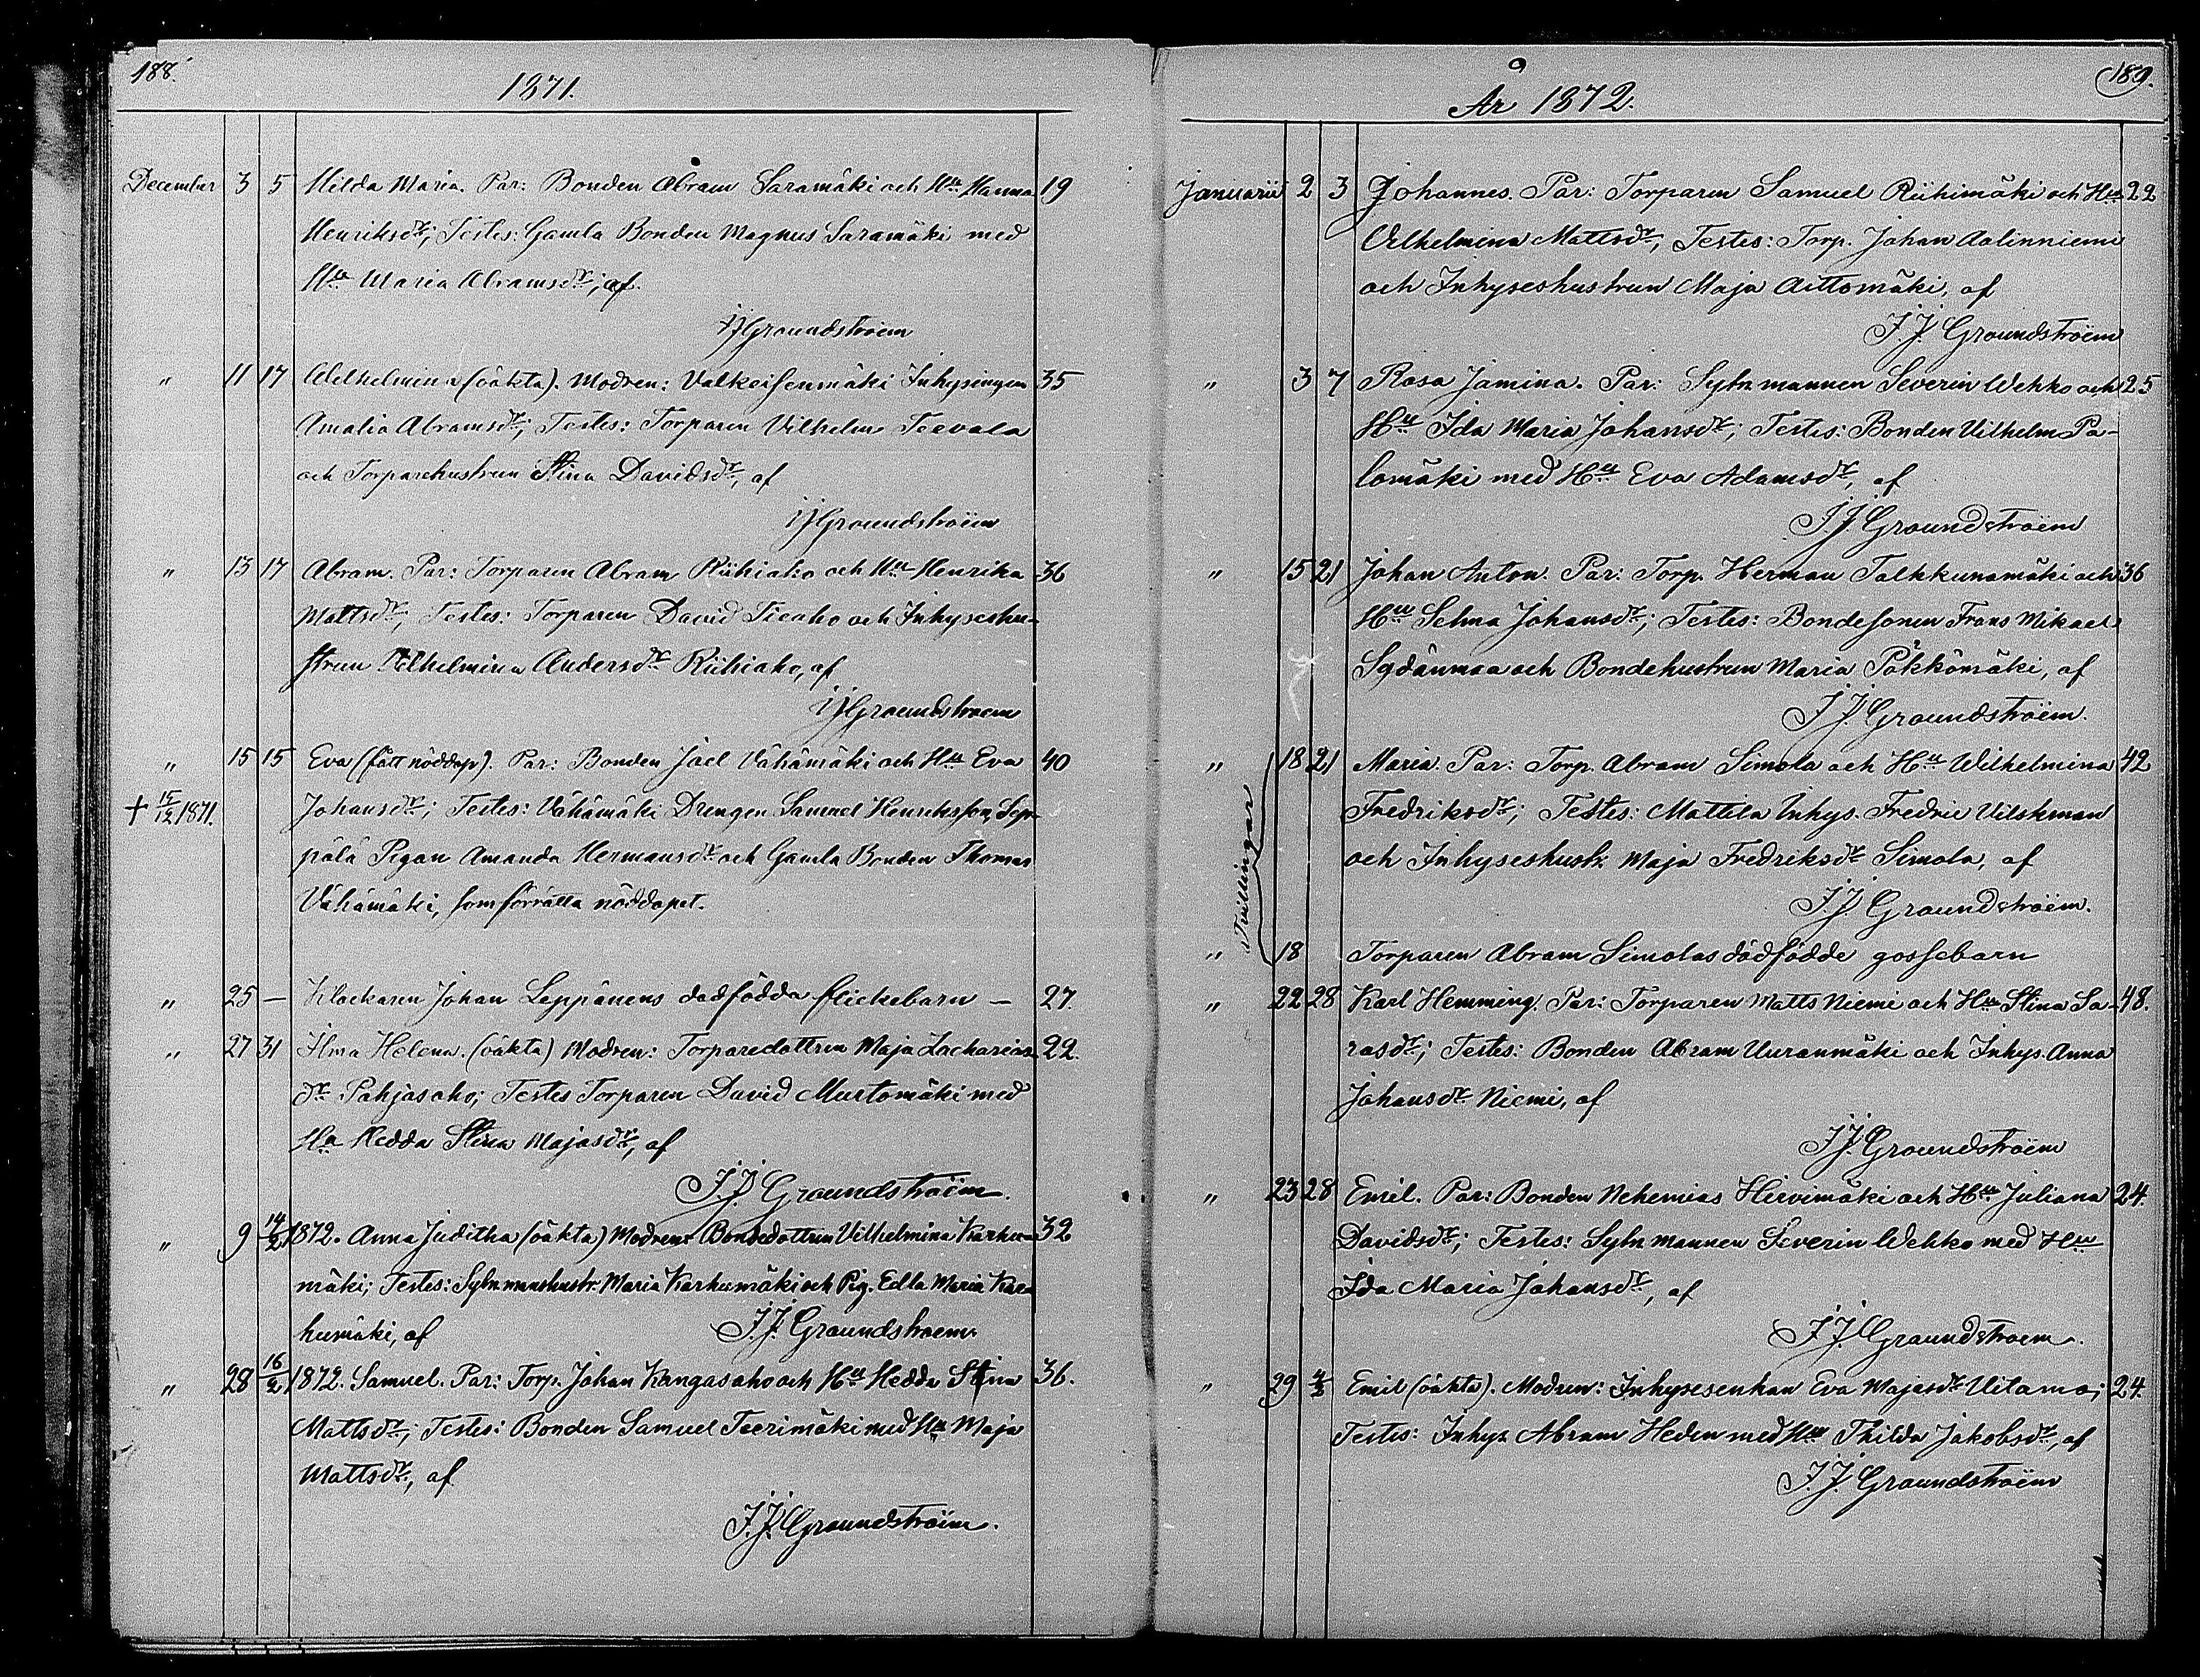 188.
1871.
December 3 5 Hilda Maria. Par: Bonden Abram Saramäki och Hu Hanna 19
Henriksdr; Testes: Gamla Bonden Magnus Saramäki med
Hu Maria Abramsdr, af
JJGroundstroem
" 11 17 Wilhelmina (oäkta). Modren: Valkeisenmäki Inhysingen 35
Amalia Abramsdr; Testes: Torparen Vilhelm Teevala
och Torparehustrun Stina Davidsdr, af
JJGroundströem
" 13 17 Abram. Par: Torparen Abram Riihiaho och Hu Henrika 36
Mattsdr; Testes: Torparen David Tieaho och Inhyseshu-
strun Vilhelmina Andersdr Riihiaho, af
JJGroundstroem
" 15 15 Eva (fått nöddop). Par: Bonden Joel Vähämäki och Hu Eva 40
+ 15/12 1871. Johansdr; Testes: Vähämäki Drengen Samuel Henriksson, Sep-
pälä Pigan Amanda Hermansdr och Gamla Bonden Thomas
Vähämäki, som förrätta nöddopet.
" 25 — Klockaren Johan Leppänens dödfödda flickebarn — 27.
" 27 31 Ilma Helena. (oäkta) Modren: Torparedottren Maja Zacharias- 22.
dr Pahjasaho; Testes Torparen David Murtomäki med
Ha Hedda Stina Majasdr, af
J.J. Groundströem.
" 9 14/2 1872. Anna Juditha (oäkta) Modren: Bondedottren Vilhelmina Karhu- 32
mäki; Testes: Sytn.manshustr. Maria Karhumäki och Pig. Edla Maria Kar-
humäki, af J.J. Groundstroem.
" 28 16/2 1872. Samuel. Par: Torp. Johan Kangasaho och Hu Hedda Stina 36.
Mattsdr; Testes: Bonden Samuel Teerimäki med Hu Maja
Mattsdr, af
J.J. Groundströem.
189.
År 1872.
Januarii 2 3 Johannes. Par: Torparen Samuel Riihimäki och Hu 22
Vilhelmina Mattsdr; Testes: Torp. Johan Aalinniemi
och Inhyseshustrun Maja Aittomäki, af
J.J. Groundströem
" 3 7 Rosa Jamina. Par: Sytn.mannen Severin Wehko och 25
Hu Ida Maria Johansdr; Testes: Bonden Vilhelm Pa-
lomäki med Hu Eva Adamsdr, af
J.J. Groundströem
" 15 21 Johan Anton. Par: Torp. Herman Talkkunamäki och 36
Hu Selma Johansdr; Testes: Bondesonen Frans Mikael
Sydänmaa och Bondehustrun Maria Pökkömäki, af
J.J. Groundströem.
Tvillingar
" 18 21 Maria. Par: Torp. Abram Simola och Hu Wilhelmina 42
Fredriksdr; Testes: Mattila Inhys. Fredric Vilskman
och Inhyseshustr. Maja Fredriksdr Simola, af
J.J. Groundströem.
" 18 Torparen Abram Simolas dödfödde gossebarn
" 22 28 Karl Hemming. Par: Torparen Matts Niemi och Hu Stina Sa- 48.
rasdr; Testes: Bonden Abram Uuranmäki och Inhys. Anna
Johansdr Niemi, af
J.J. Groundströem
" 23 28 Emil. Par: Bonden Nehemias Hirvimäki och Hu Juliana 24.
Davidsdr; Testes: Sytn.mannen Severin Wehko med Hu
Ida Maria Johansdr, af
J.J. Groundstroem.
" 29 4/3 Emil (oäkta). Modren: Inhysesenkan Eva Majasdr Uitamo; 24.
Testes: Inhys. Abram Heden med Hu Thilda Jakobsdr, af
J.J. Groundströem